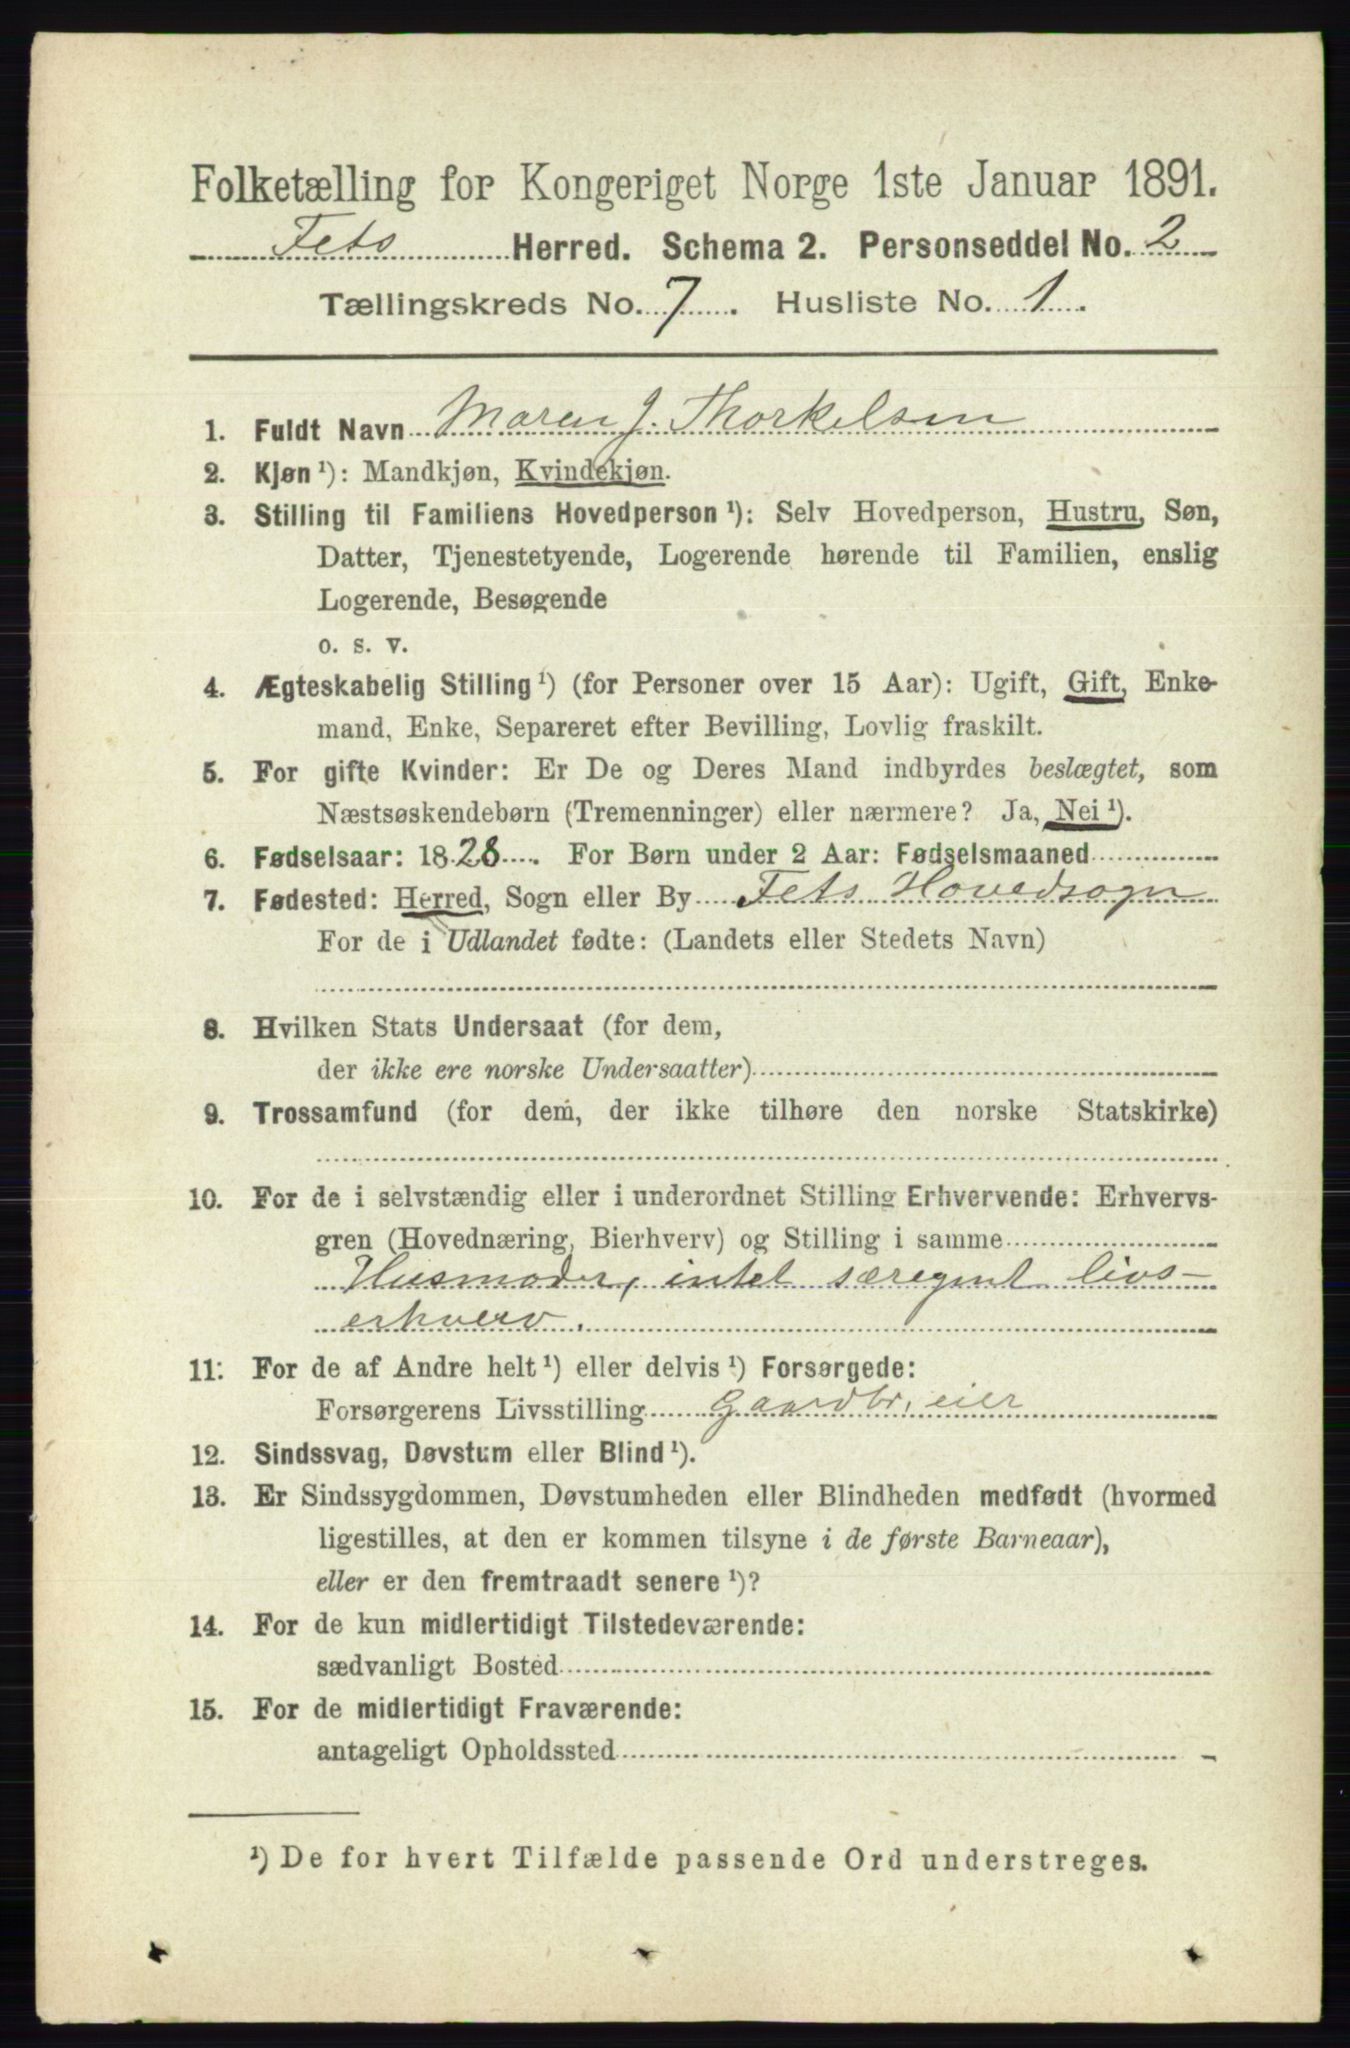 Folketælling for Kongeriget Norge 1ste Januar 1891.
Fets Herred. Schema 2. Personseddel No. 2
Tællingskreds No. 7. Husliste No. 1.
1. Fuldt Navn Maren J. Thorkelsen
2. Kjøn ¹): Mandkjøn, Kvindekjøn.
3. Stilling til Familiens Hovedperson ¹): Selv Hovedperson, Hustru, Søn,
Datter, Tjenestetyende, Logerende hørende til Familien, enslig
Logerende, Besøgende
o. s. v.
4. Ægteskabelig Stilling ¹) (for Personer over 15 Aar): Ugift, Gift, Enke-
mand, Enke, Separeret efter Bevilling, Lovlig fraskilt.
5. For gifte Kvinder: Er De og Deres Mand indbyrdes beslægtet, som
Næstsøskendebørn (Tremenninger) eller nærmere? Ja, Nei ¹).
6. Fødselsaar: 1828. For Børn under 2 Aar: Fødselsmaaned
7. Fødested: Herred, Sogn eller By Fets Hovedsogn
For de i Udlandet fødte: (Landets eller Stedets Navn)
8. Hvilken Stats Undersaat (for dem,
der ikke ere norske Undersaatter)
9. Trossamfund (for dem, der ikke tilhøre den norske Statskirke)
10. For de i selvstændig eller i underordnet Stilling Erhvervende: Erhvervs-
gren (Hovednæring, Bierhverv) og Stilling i samme
Husmoder, intet særegent livs-
erhverv.
11. For de af Andre helt ¹) eller delvis ¹) Forsørgede:
Forsørgerens Livsstilling Gaardbr, eier
12. Sindssvag, Døvstum eller Blind ¹).
13. Er Sindssygdommen, Døvstumheden eller Blindheden medfødt (hvormed
ligestilles, at den er kommen tilsyne i de første Barneaar),
eller er den fremtraadt senere ¹)?
14. For de kun midlertidigt Tilstedeværende:
sædvanligt Bosted
15. For de midlertidigt Fraværende:
antageligt Opholdssted
¹) De for hvert Tilfælde passende Ord understreges.